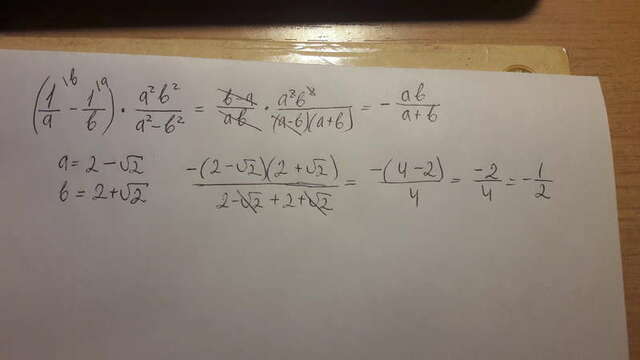 (1/a \b - 1/b \a) · a²b²/(a²-b²) = (b-a)/(ab) · a²b²/((a-b)(a+b)) = - ab/(a+b)
a = 2-√2
-(2-√2)(2+√2)/(2-√2+2+√2) = -(4-2)/4 = -2/4 = -1/2
b = 2+√2